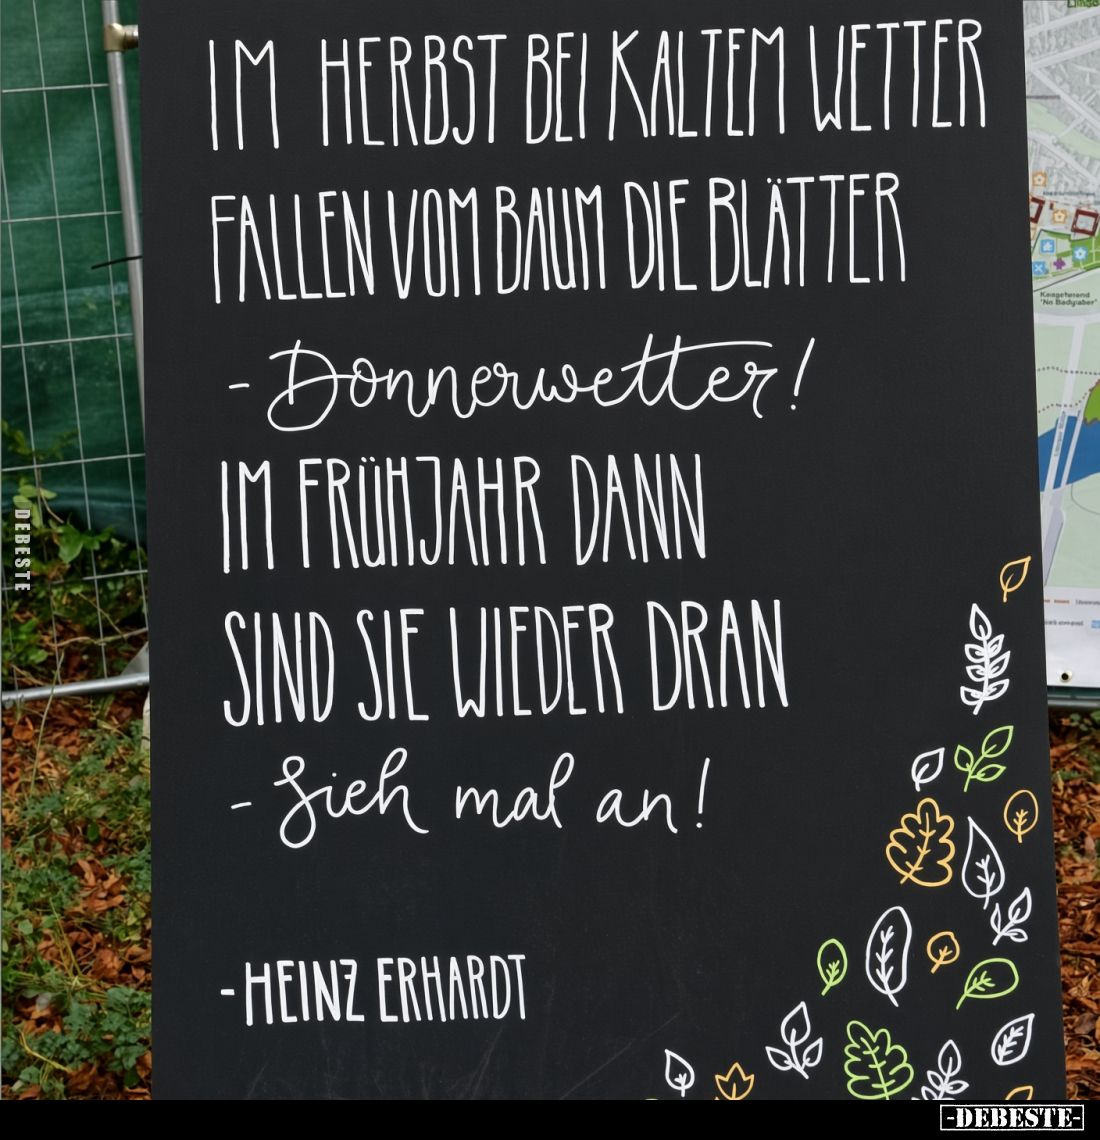 IM HERBST BEI KALTEM WETTER
FALLEN VOM BAUM DIE BLÄTTER
- Donnerwetter!
IM FRÜHJAHR DANN
SIND SIE WIEDER DRAN
- Sieh mal an!
- HEINZ ERHARDT
DEBESTE
-DEBESTE-